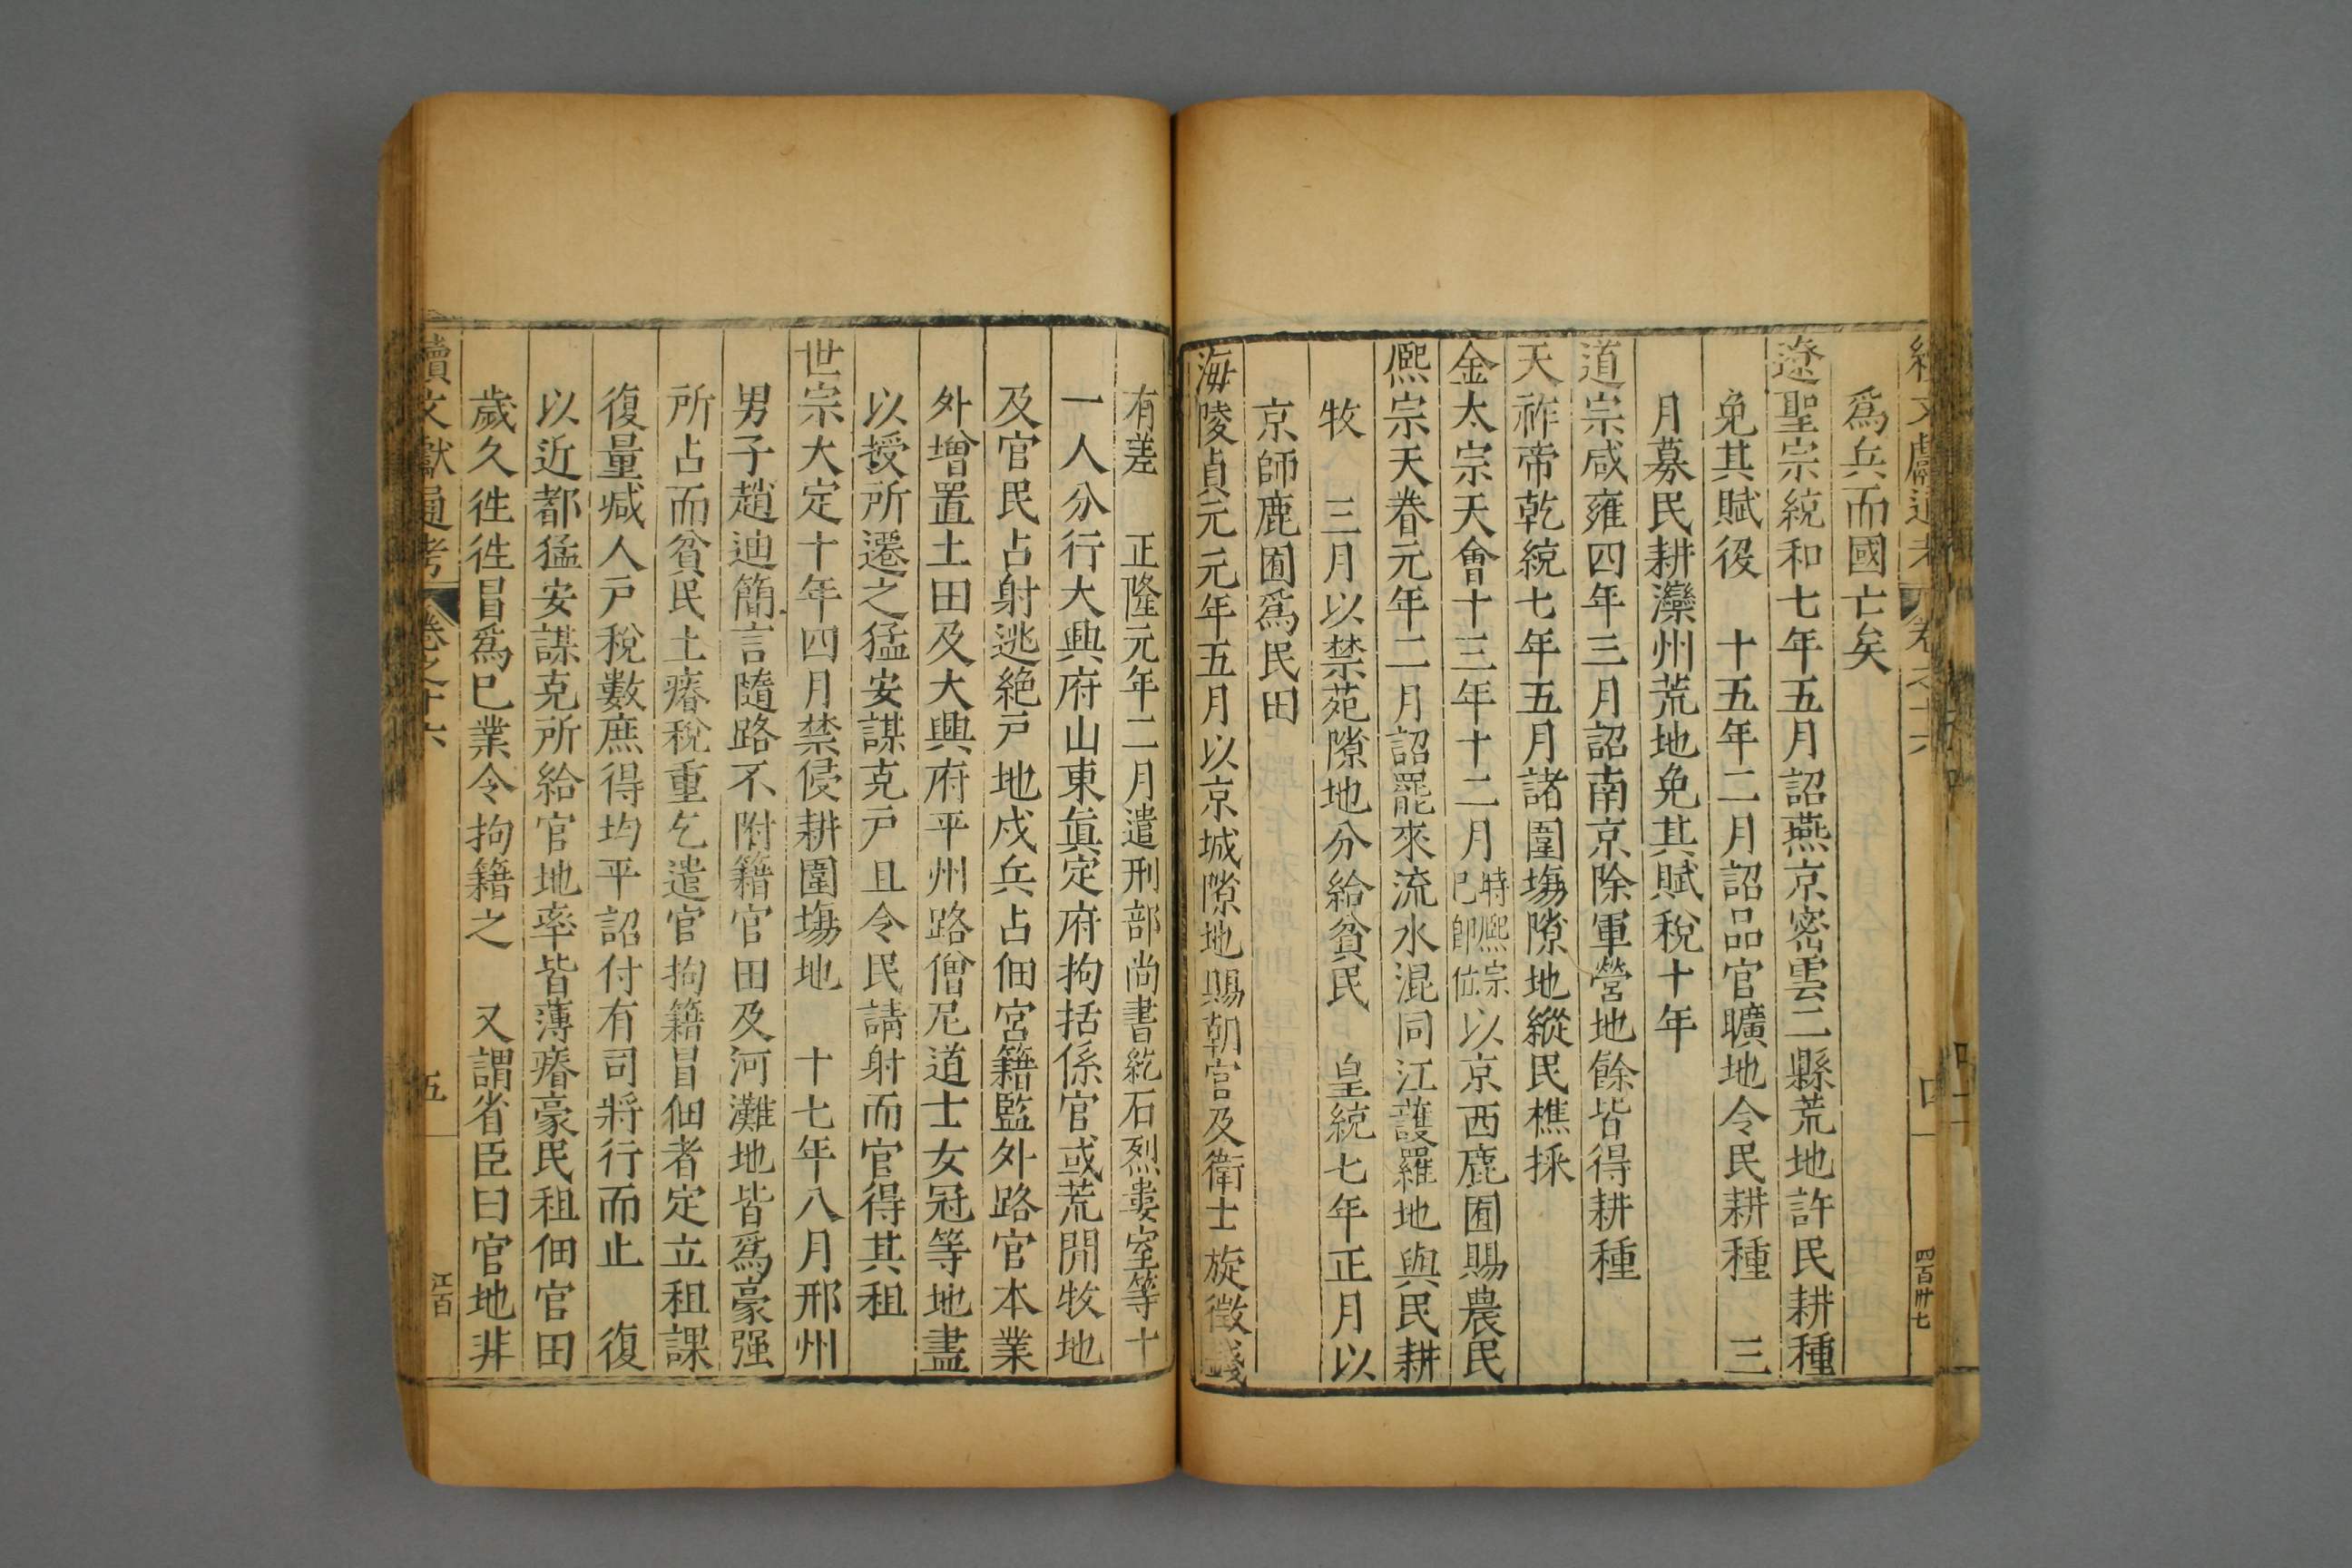 續文獻通考 卷之十六 四 四百卅七
爲兵而國亡矣
遼聖宗統和七年五月詔燕京密雲二縣荒地許民耕種
免其賦役 十五年二月詔品官曠地令民耕種 三
月募民耕灤州荒地免其賦稅十年
道宗咸雍四年三月詔南京除軍營地餘皆得耕種
天祚帝乾統七年五月諸圍塲隙地縱民樵採
金太宗天會十三年十二月時熈宗已卽位以京西鹿囿賜農民
熈宗天眷元年二月詔罷來流水混同江護羅地與民耕
牧 三月以禁苑隙地分給貧民 皇統七年正月以
京師鹿囿爲民田
海陵貞元元年五月以京城隙地賜朝官及衛士旋徵錢
有差 正隆元年二月遣刑部尚書紇石烈婁室等十
一人分行大興府山東眞定府拘括係官或荒閒牧地
及官民占射逃絕戶地戍兵占佃宮籍監外路官本業
外增置土田及大興府平州路僧尼道士女冠等地盡
以授所遷之猛安謀克戶且令民請射而官得其租
世宗大定十年四月禁侵耕圍塲地 十七年八月邢州
男子趙迪簡言隨路不附籍官田及河灘地皆爲豪强
所占而貧民土瘠稅重乞遣官拘籍冒佃者定立租課
復量减人戶稅數庶得均平詔付有司將行而止 復
以近都猛安謀克所給官地率皆薄瘠豪民租佃官田
歲久徃徃冒爲已業令拘籍之 又謂省臣曰官地非
續文獻通考 卷之十六 五 江百